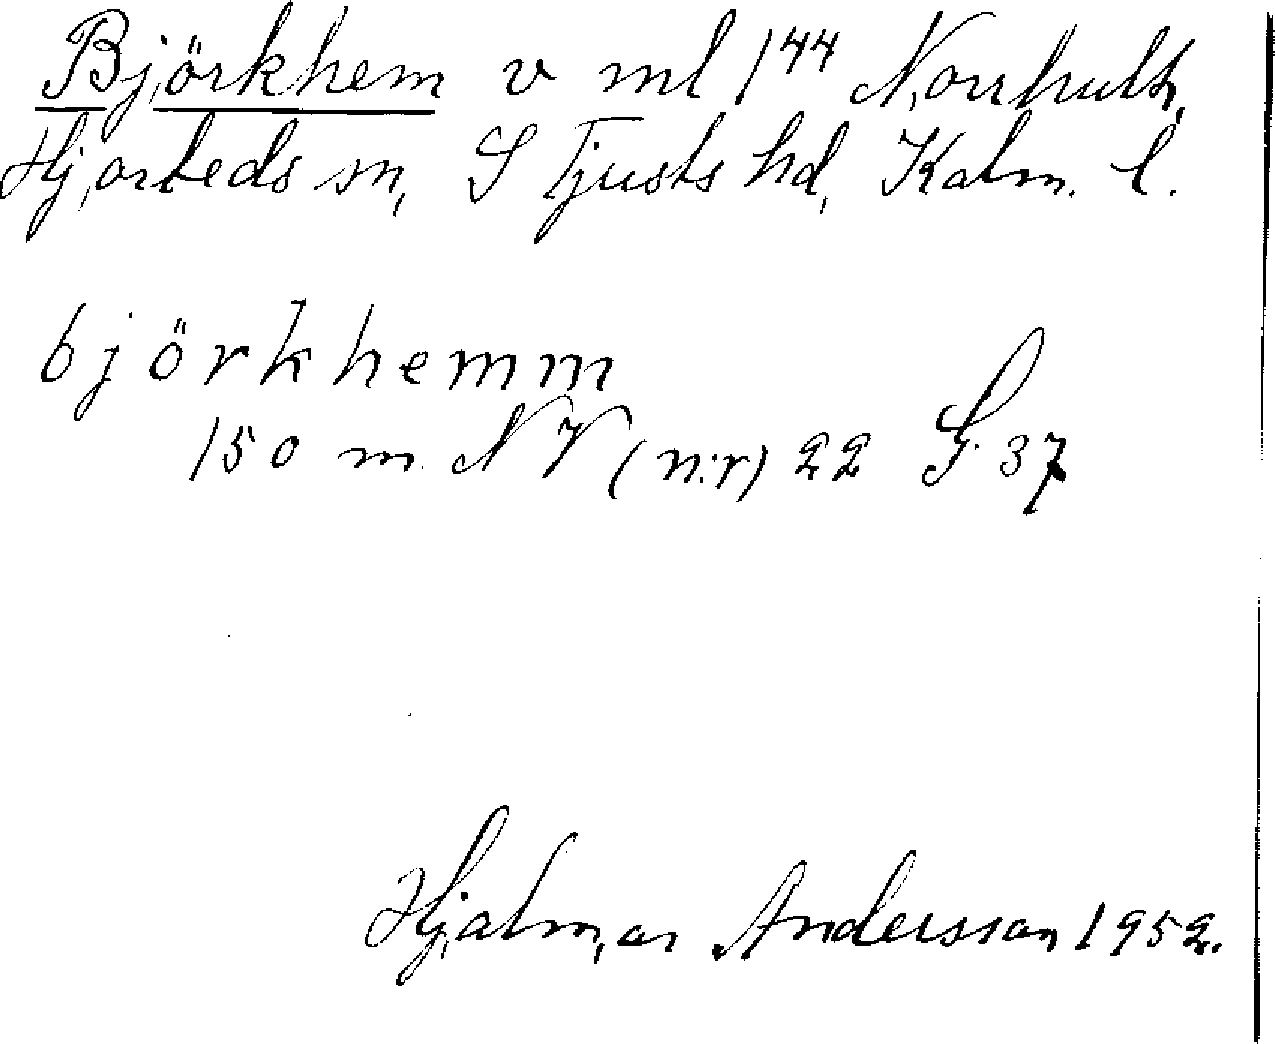 Björkhem v ml 1⁴⁴ Norrhult,
Hjorteds sn, S Tjusts hd, Kalm. l.
björkhemm
150 m NV (n:r) 22 S. 37
Hjalmar Andersson 1952.